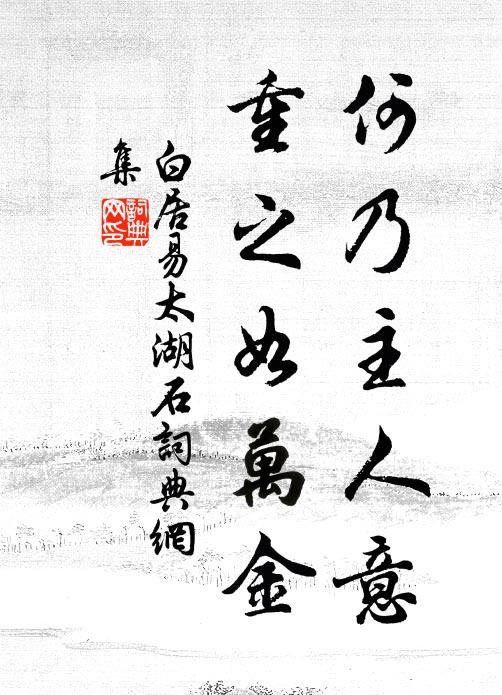 何乃主人意
重之如萬金
白居易太湖石詞典網
集
詞典
网印